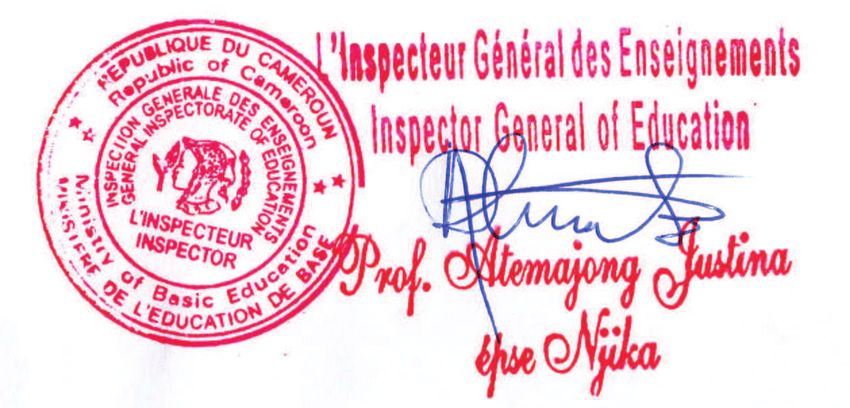 REPUBLIQUE DU CAMEROUN
Republic of Cameroon
MINISTERE DE L'EDUCATION DE BASE
Ministry of Basic Education
INSPECTION GENERALE DES ENSEIGNEMENTS
GENERAL INSPECTORATE OF EDUCATION
L'INSPECTEUR
INSPECTOR
L'Inspecteur Général des Enseignements
Inspector General of Education
Prof. Atemajong Justina
épse Njika